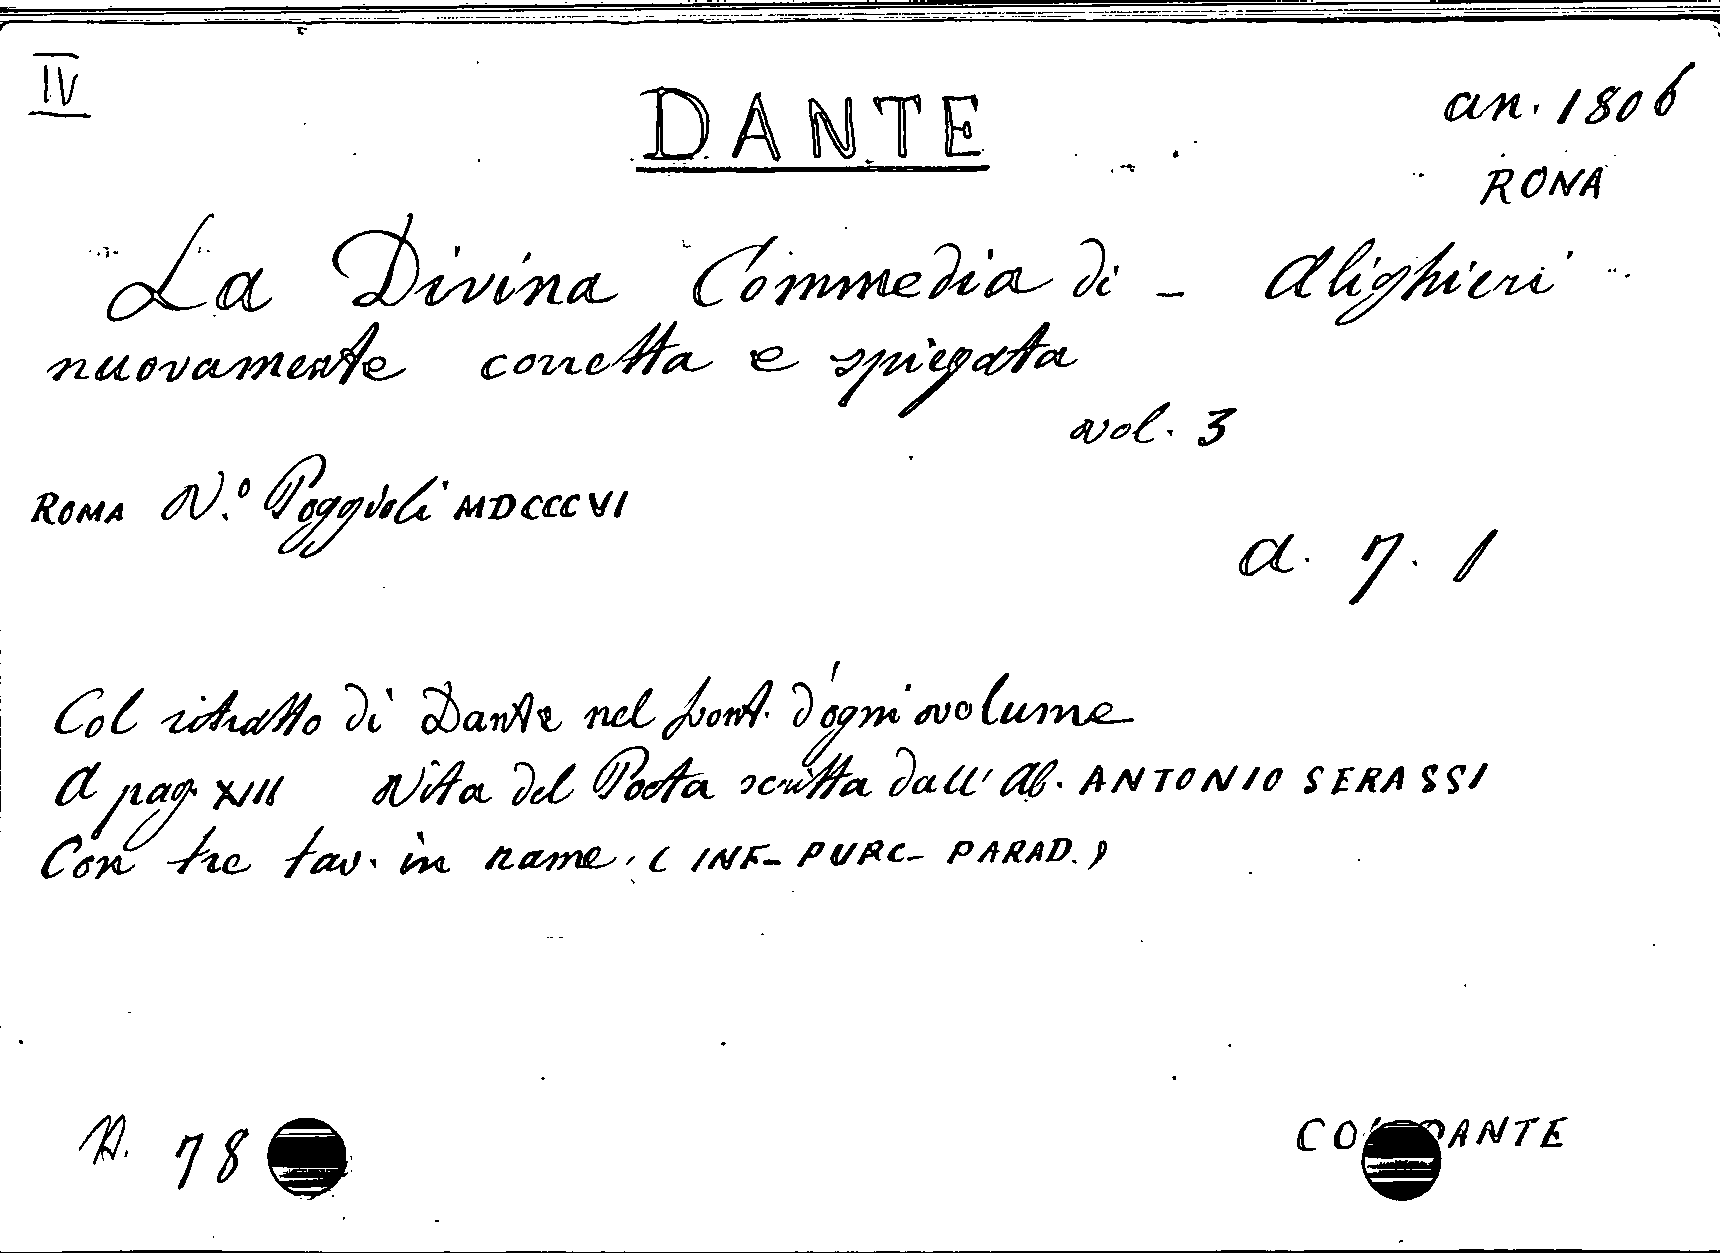 IV
DANTE
an. 1806
ROMA
La Divina Commedia di - Alighieri
nuovamente corretta e spiegata
vol. 3
ROMA N.º Poggioli MDCCCVI
A. 7. 1
Col ritratto di Dante nel front. d'ogni volume
A pag. XIII Vita del Poeta scritta dall' Ab. ANTONIO SERASSI
Con tre tav. in rame. (INF- PURG- PARAD.)
N. 78
DANTE